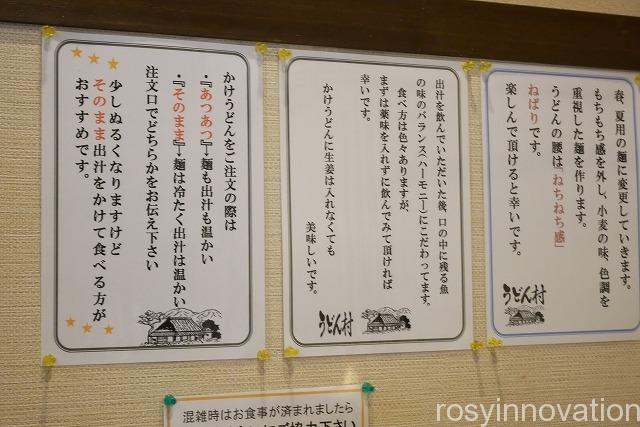 春、夏用の麺に変更していきます。
もちもち感を外し、小麦の味、色調を
重視した麺を作ります。
うどんの腰は「ねちねち感」
ねばりです。
楽しんで頂けると幸いです。
うどん村
出汁を飲んでいただいた後、口の中に残る魚
の味のバランス(ハーモニー)にこだわってます。
食べ方は色々ありますが、
まずは薬味を入れずに飲んでみて頂ければ
幸いです。
かけうどんに生姜は入れなくても
美味しいです。
うどん村
かけうどんをご注文の際は
・『あつあつ』→麺も出汁も温かい
・『そのまま』→麺は冷たく出汁は温かい
注文口でどちらかをお伝え下さい
少しぬるくなりますけど
そのまま出汁をかけて食べる方が
おすすめです。
混雑時はお食事が済まれましたら
rosyinnovation